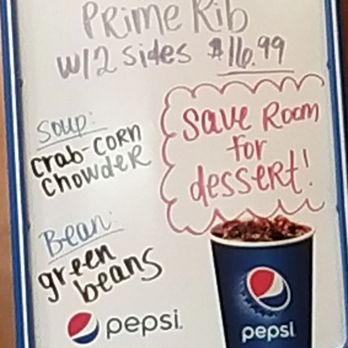 Prime Rib
w/2 sides $16.99
Soup:
Crab-Corn
Chowder
Save Room
for
dessert!
Bean:
green
beans
pepsi.
pepsi